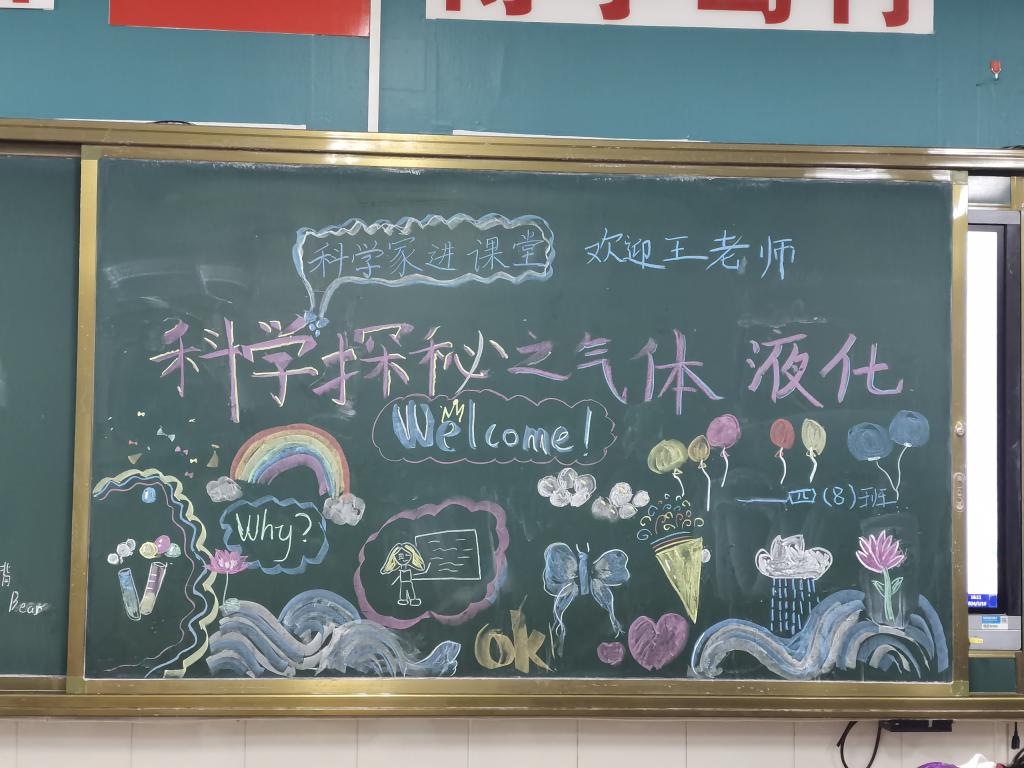 科学家进课堂
欢迎王老师
科学探秘之气体液化
Welcome!
——四(8)班
Why?
OK
Dear